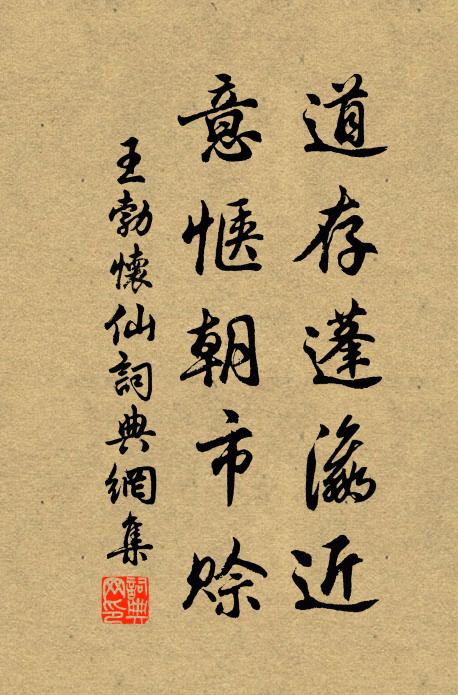 道存蓬瀛近
意愜朝市賒
王勃懷仙詞典網集
詞典網印